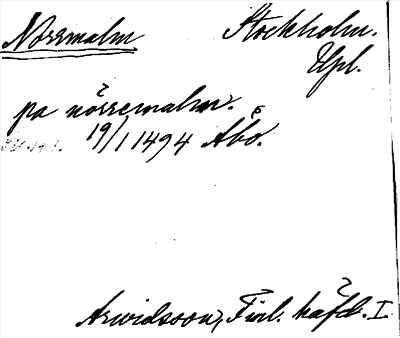 Norrmalm
Stockholm.
Upl.
pa nörremalm.
19/1 1494 Åbo.
Arwidsson, Finl. häfd. I